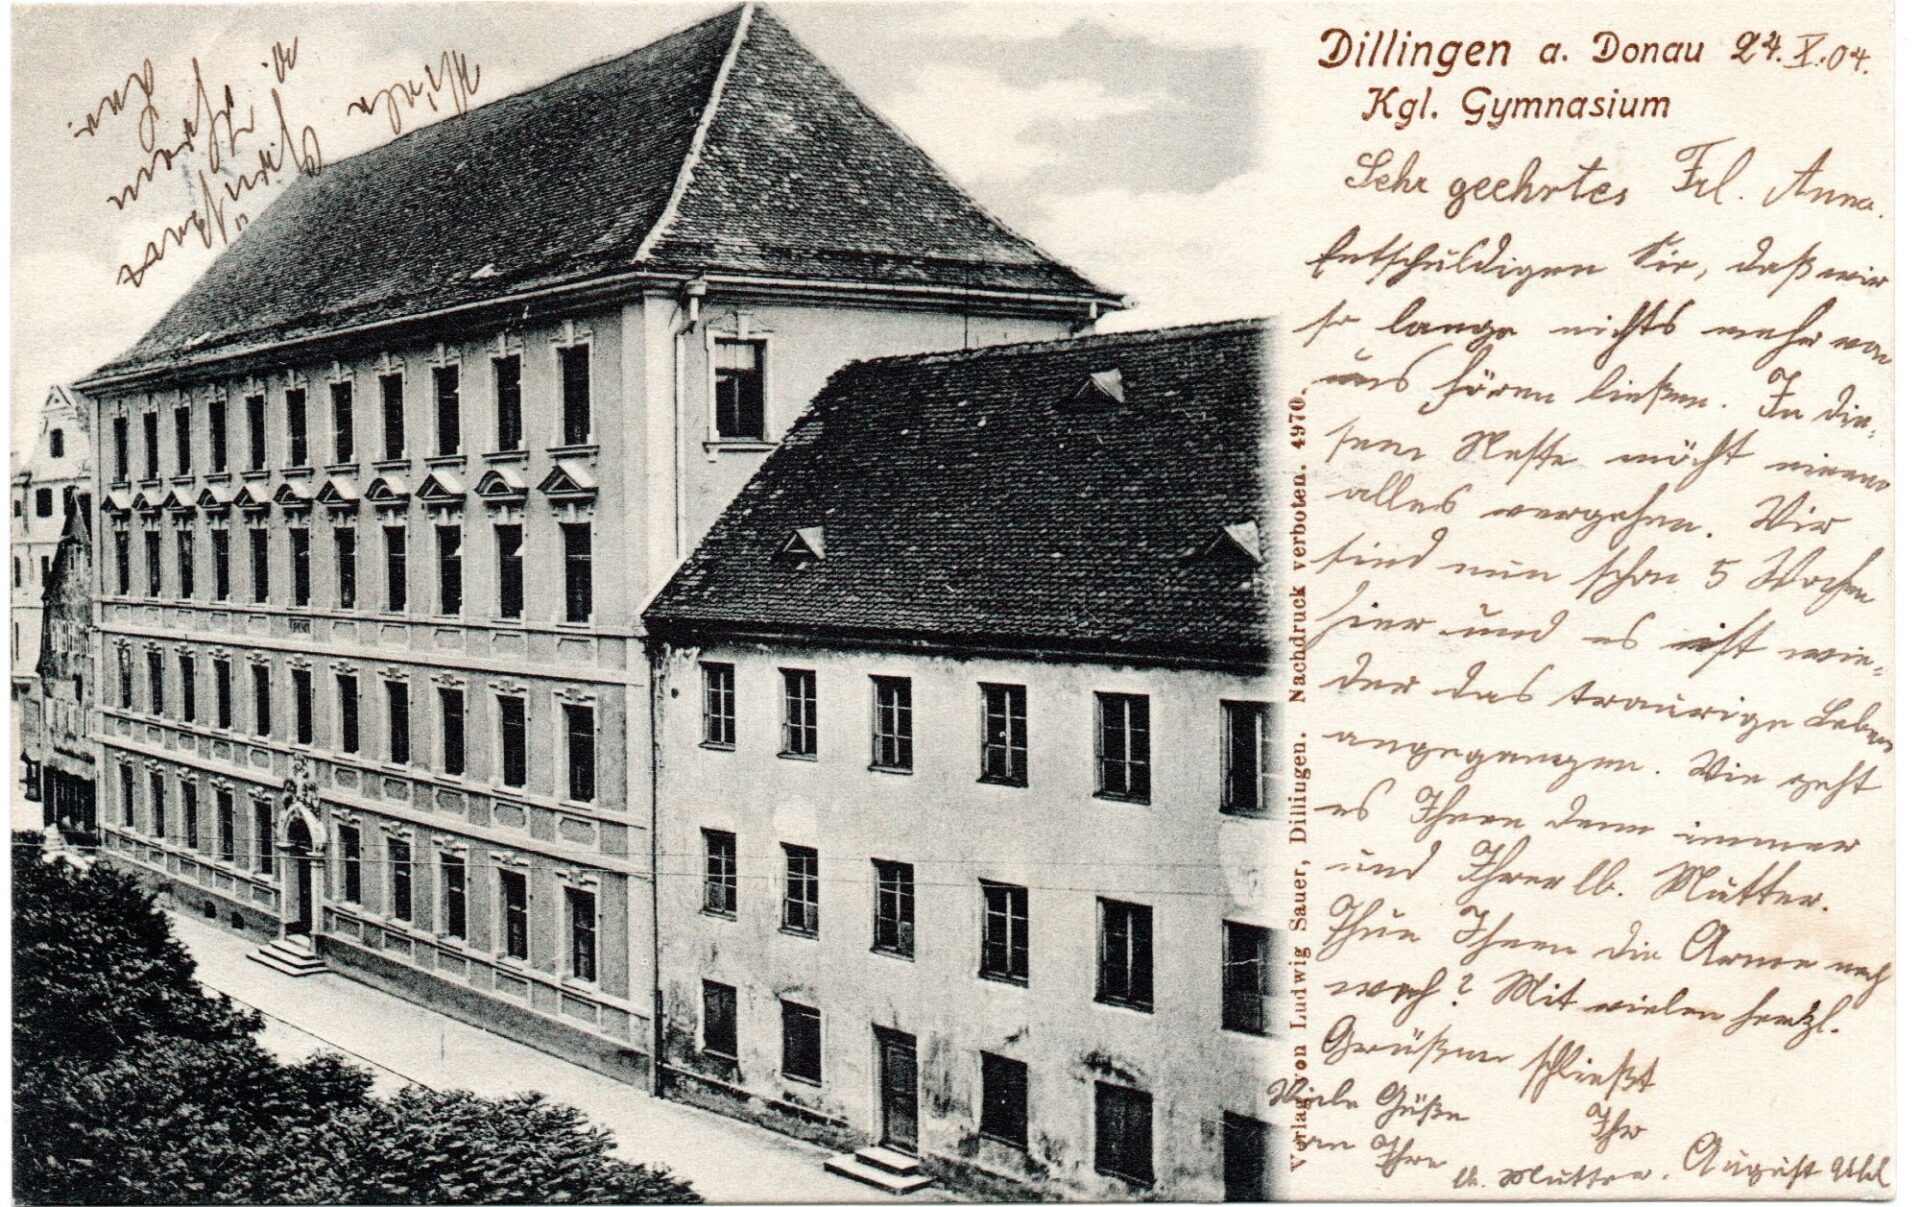 Dillingen a. Donau 24.X.04.
Kgl. Gymnasium
Sehr geehrtes Frl. Anna.
Entschuldigen Sie, daß wir
so lange nichts mehr von
uns hören ließen. In die-
sem Neste möcht einem
alles vergehen. Wir
sind nun schon 5 Wochen
hier und es ist wie-
der das traurige Leben
angegangen. Wie geht
es Ihnen denn immer
und Ihrer lb. Mutter.
Thun Ihnen die Arme noch
weh? Mit vielen herzl.
Grüßen schließt
Ihr
August
Viele Güße
an Ihre
lb. Mutter.
Verlag von Ludwig Sauer, Dillingen. Nachdruck verboten. 4970.